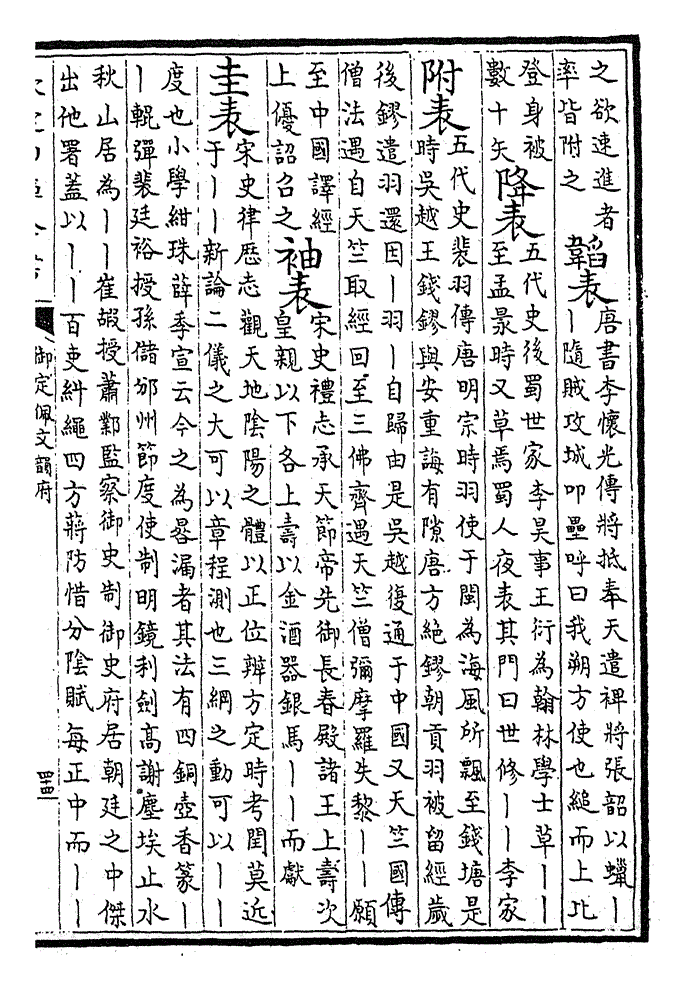 之欲速進者
率皆附之
韜表
唐書李懷光傳將抵奉天遣裨將張韶以蠟丨
丨隨賊攻城叩壘呼曰我朔方使也縋而上比
登身被
數十矢
降表
五代史後蜀世家李昊事王衍為翰林學士草丨丨
至孟昶時又草焉蜀人夜表其門曰世修丨丨李家
附表
五代史裴羽傳唐明宗時羽使于閩為海風所飄至錢塘是
時吳越王錢鏐與安重誨有隙唐方絕鏐朝貢羽被留經歲
後鏐遣羽還因丨羽丨自歸由是吳越復通于中國又天竺國傳
僧法遇自天竺取經回至三佛齊遇天竺僧彌摩羅失黎丨丨願
至中國譯經
上優詔召之
袖表
宋史禮志承天節帝先御長春殿諸王上壽次
皇親以下各上壽以金酒器銀馬丨丨而獻
圭表
宋史律歷志觀天地陰陽之體以正位辨方定時考閏莫近
于丨丨新論二儀之大可以章程測也三綱之動可以丨丨
度也小學紺珠薛季宣云今之為晷漏者其法有四銅壺香篆丨
丨輥彈裴廷裕授孫儲邠州節度使制明鏡利劍高謝塵埃止水
秋山居為丨丨崔嘏授蕭鄴監察御史制御史府居朝廷之中傑
出他署蓋以丨丨百吏糾繩四方蔣防惜分陰賦每正中而丨丨
御定佩文韻府